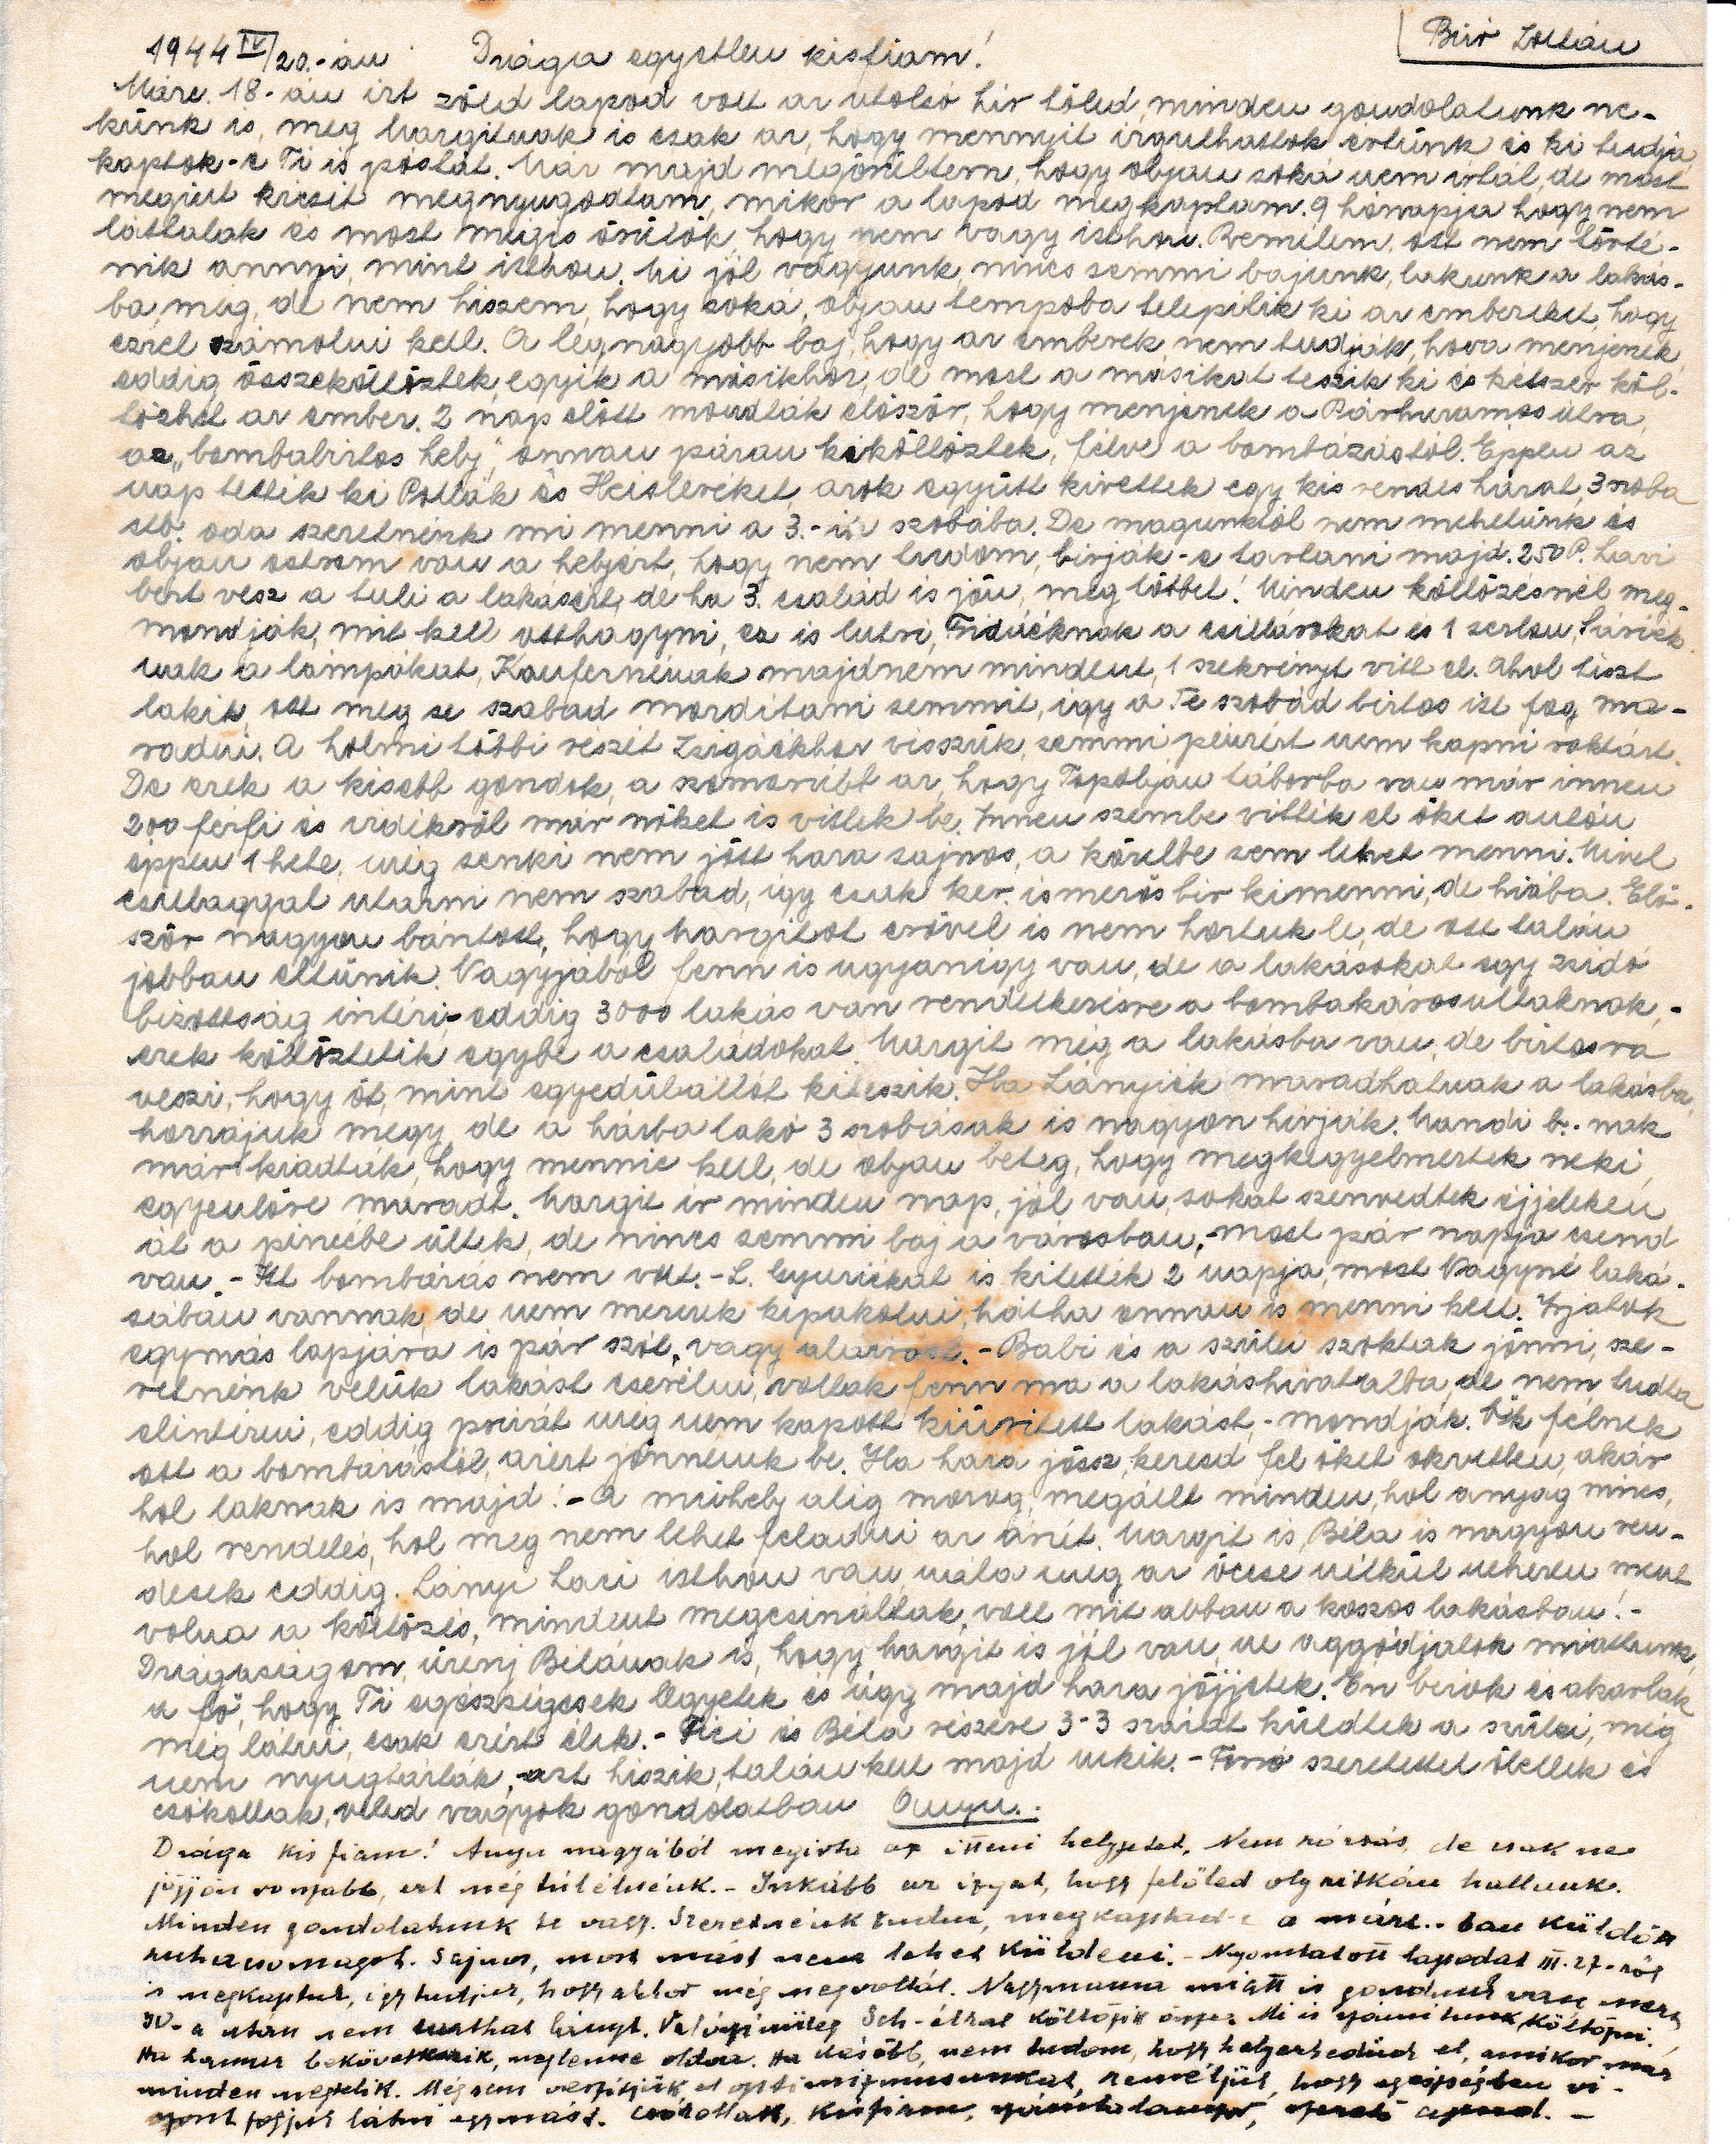 Biró Zoltán
1944 IV/20.-án Drága egyetlen kisfiam!
Márc. 18-án irt zöld lapod volt az utolsó hir tőled, minden gondolatunk ne-
künk is, meg Margitnak is csak az, hogy mennyit izgulhattok értünk és ki tudja
kaptok-e Ti is postát. Már majd megőrültem, hogy olyan soká nem irtál, de most
megint kicsit megnyugodtam, mikor a lapod megkaptam. 9 hónapja hogy nem
láttalak és most mégis örülök, hogy nem vagy itthon. Remélem, ott nem törté-
nik annyi, mint itthon. Mi jól vagyunk, nincs semmi bajunk, lakunk a lakás-
ba még, de nem hiszem, hogy soká, olyan tempóba telepitik ki az embereket, hogy
ezzel számolni kell. A legnagyobb baj, hogy az emberek nem tudják, hova menjenek,
eddig összeköltöztek, egyik a másikhoz, de most a másikat teszik ki és kétszer köl-
tözhet az ember. 2 nap előtt mondták először, hogy menjenek a Párhuzamos utra,
az „bombabiztos hely", onnan páran kiköltöztek, félve a bombázástól. Éppen az
nap tették ki Pollák és Heislereket, azok együtt kivettek egy kis rendes házat, 3 szoba
stb. oda szeretnénk mi menni a 3.-ik szobába. De magunktól nem mehetünk és
olyan ostrom van a helyért, hogy nem tudom, birják-e tartani majd. 250 P. havi
bért vesz a tuli a lakásért, de ha 3. család is jön, még többet! Minden költözésnél meg-
mondják, mit kell otthagyni, ez is lutri, a csillárokat és 1 serlon,
nak a lámpákat, majdnem mindent, 1 szekrényt vitt el. Ahol tiszt
lakik, ott meg se szabad mozditani semmit, igy a Te szobád biztos itt fog ma-
radni. A holmi többi részét Zsigáékhoz visszük, semmi pénzért nem kapni raktárt.
De ezek a kisebb gondok, a szomorúbb az, hogy Topolyán táborba van már innen
200 férfi és vidékről már nőket is vittek be. Innen szembe vitték el őket autón
éppen 1 hete, még senki nem jött haza sajnos, a közelbe sem lehet menni. Mivel
csillaggal utazni nem szabad, igy csak ker. ismerős bir kimenni, de hiába. Elő-
ször nagyon bántott, hogy Margitot erővel is nem hoztuk le, de ott talán
jobban eltünik. Nagyjából fenn is ugyanigy van, de a lakásokat egy zsidó
bizottság intézi, eddig 3000 lakás van rendelkezésre a bombakárosultaknak, -
ezek költöztetik egybe a családokat. Margit még a lakásba van, de biztosra
veszi, hogy őt, mint egyedülállót kiteszik. Ha Lányiék maradhatnak a lakásba,
hozzájuk megy, de a házba lakó 3 szobásak is nagyon hivják. Mandi b.-nak
már kiadták, hogy mennie kell, de olyan beteg, hogy megkegyelmeztek neki,
egyenlőre maradt. Margit ir minden nap, jól van, sokat szenvedtek éjjeleken
át a pincébe ültek, de nincs semmi baj a városban, - most pár napja csend
van. - Itt bombázás nem volt. - L. Gyuriékat is kitették 2 napja, most Nagyné laká-
sában vannak, de nem mernek kipakolni, hátha onnan is menni kell. Irjatok
egymás lapjára is pár szót, vagy aláirást. - Babi és a szülei szoktak jönni, sze-
retnénk velük lakást cserélni, voltak fenn ma a lakáshivatalba, de nem tudta
elintézni, eddig privát még nem kapott kiüritett lakást, - mondják. Ők félnek
ott a bombázástól, azért jönnének be. Ha haza jössz, keresd fel őket okvetlen, akár
hol laknak is majd! - A műhely alig mozog, megállt minden, hol anyag nincs,
hol rendelés, hol meg nem lehet feladni az árút. Margit is, Béla is nagyon ren-
desek eddig. Lányi Laci itthon van, nála meg az öccse nélkül nehezen ment
volna a költözés, mindent megcsináltak, volt mit abban a koszos lakásban! -
Drágaságom, üzenj Bélának is, hogy Margit is jól van, ne aggódjatok miattunk,
a fő, hogy Ti egészségesek legyetek és úgy majd haza jöjjetek. Én birok és akarlak
meg látni, csak ezért élek. - Fici és Béla részére 3-3 szvettert küldtek a szülei, még
nem nyugtázták, azt hiszik, talán kell majd nekik. - Forró szeretettel ölellek és
csókollak, veled vagyok gondolatban Anyu. -
Drága kis fiam! Anyu nagyjából megirta az itteni helyzetet. Nem rózsás, de csak ne
jöjjön rosszabb, ezt még túlélnénk. - Inkább az izgat, hogy felőled oly ritkán hallunk.
Minden gondolatunk te vagy. Szeretnénk tudni, megkaptad-e a márc.-ban küldött
ruhacsomagot. Sajnos, most mást nem lehet küldeni. - Nyomtatott lapodat III. 27-ről
is megkaptuk, igy tudjuk, hogy akkor még megvoltál. Nagymama miatt is gondunk van mert
30-a után nem tarthat lányt. Valószinüleg Sch-ékhez költözik össze. Mi is számitunk költözni.
Ha hamar bekövetkezik, meglenne oldva. Ha később, nem tudom, hogy helyezkedünk el, amikor már
minden megtelik. Mégsem veszitjük el optimizmusunkat, reméljük, hogy egészségben vi-
szont fogjuk látni egymást. Csókollak, kisfiam, számtalanszor, szerető apád. -